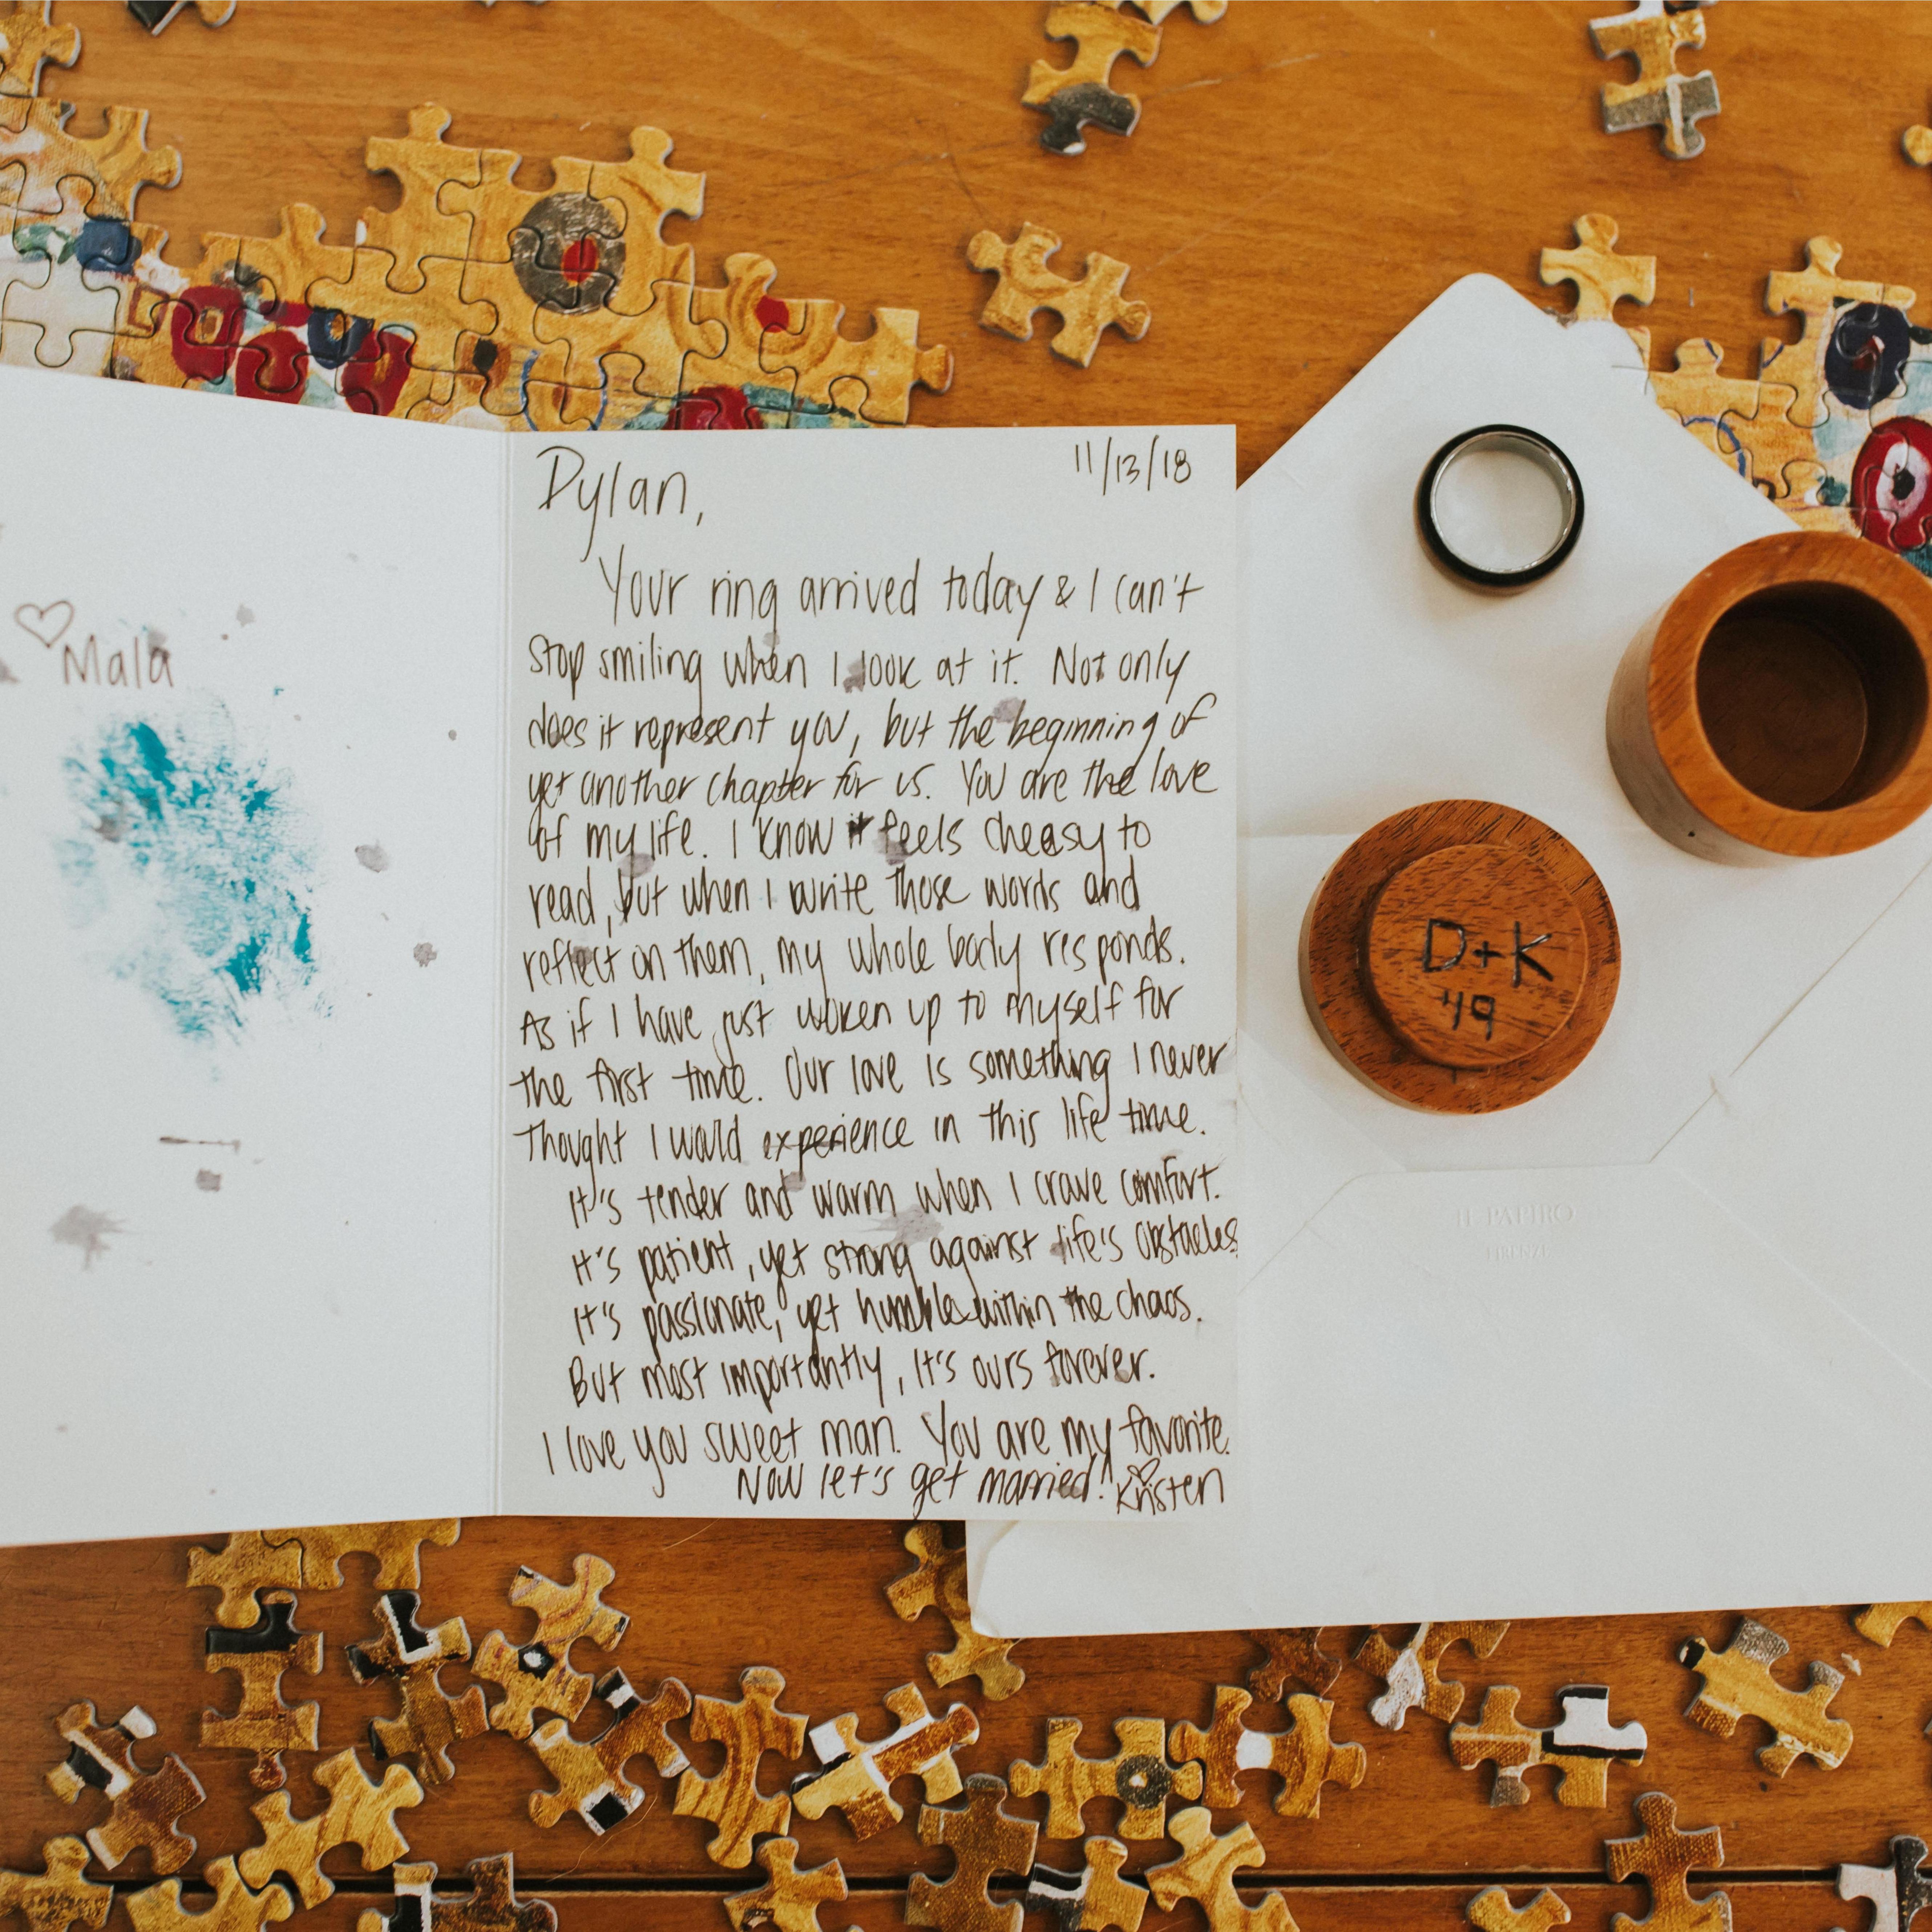 Mala
Dylan,
11/13/18
Your ring arrived today & I can't
stop smiling when I look at it. Not only
does it represent you, but the beginning of
yet another chapter for us. You are the love
of my life. I know it feels cheasy to
read, but when I write those words and
reflect on them, my whole body responds.
As if I have just woken up to myself for
the first time. Our love is something I never
thought I would experience in this life time.
It's tender and warm when I crave comfort.
It's patient, yet strong against life's obstacles.
It's passionate, yet humble within the chaos.
But most importantly, it's ours forever.
I love you sweet man. You are my favorite.
Now let's get married!
Kristen
D+K
'19
IL PAPIRO
FIRENZE